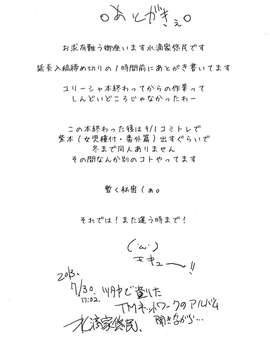 ○あとがきぇ○
お求め難う御座います水滴家悠民です
延長入稿締め切りの1時間前にあとがき書いてます
ユリーシャ本終わってからの作業って
しんどいどころじゃなかったわー
この本終わった後は9/1コミトレで
紫本(女児種付・番外篇)出すぐらいで
冬まで同人ありません
その間なんか別のコトやってます
暫く秘密(ぁ。
それでは!また逢う時まで!
エキューーー!!
2013.
7/30.
17:02.
TMネットワークのアルバム
聞きながら…